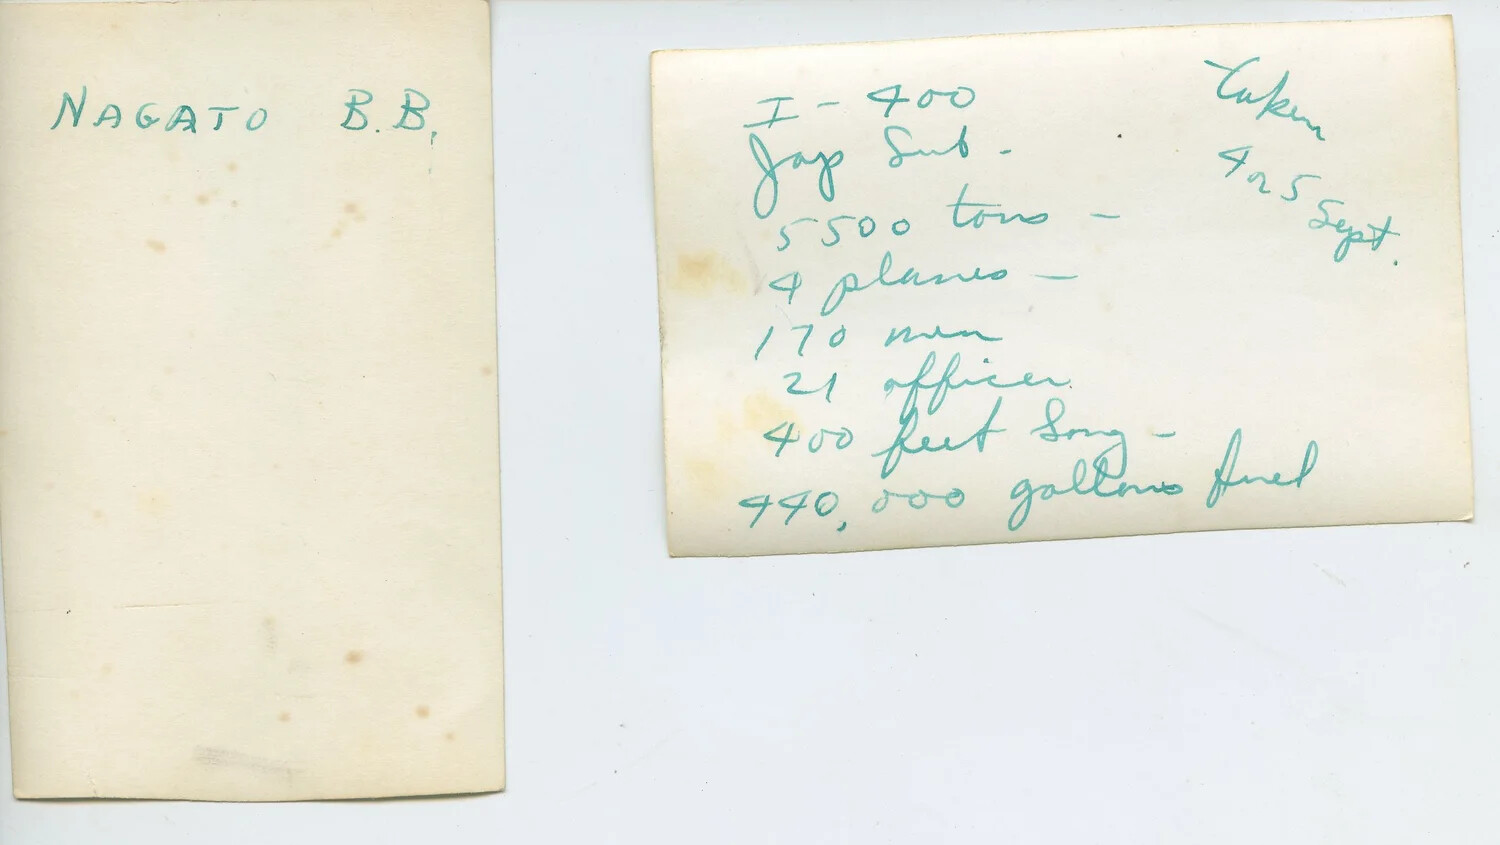 NAGATO B.B.
I - 400
Jap Sub -
5500 tons -
4 planes -
170 men
21 officer
400 feet long -
440,000 gallons fuel
Taken
4 or 5 Sept.